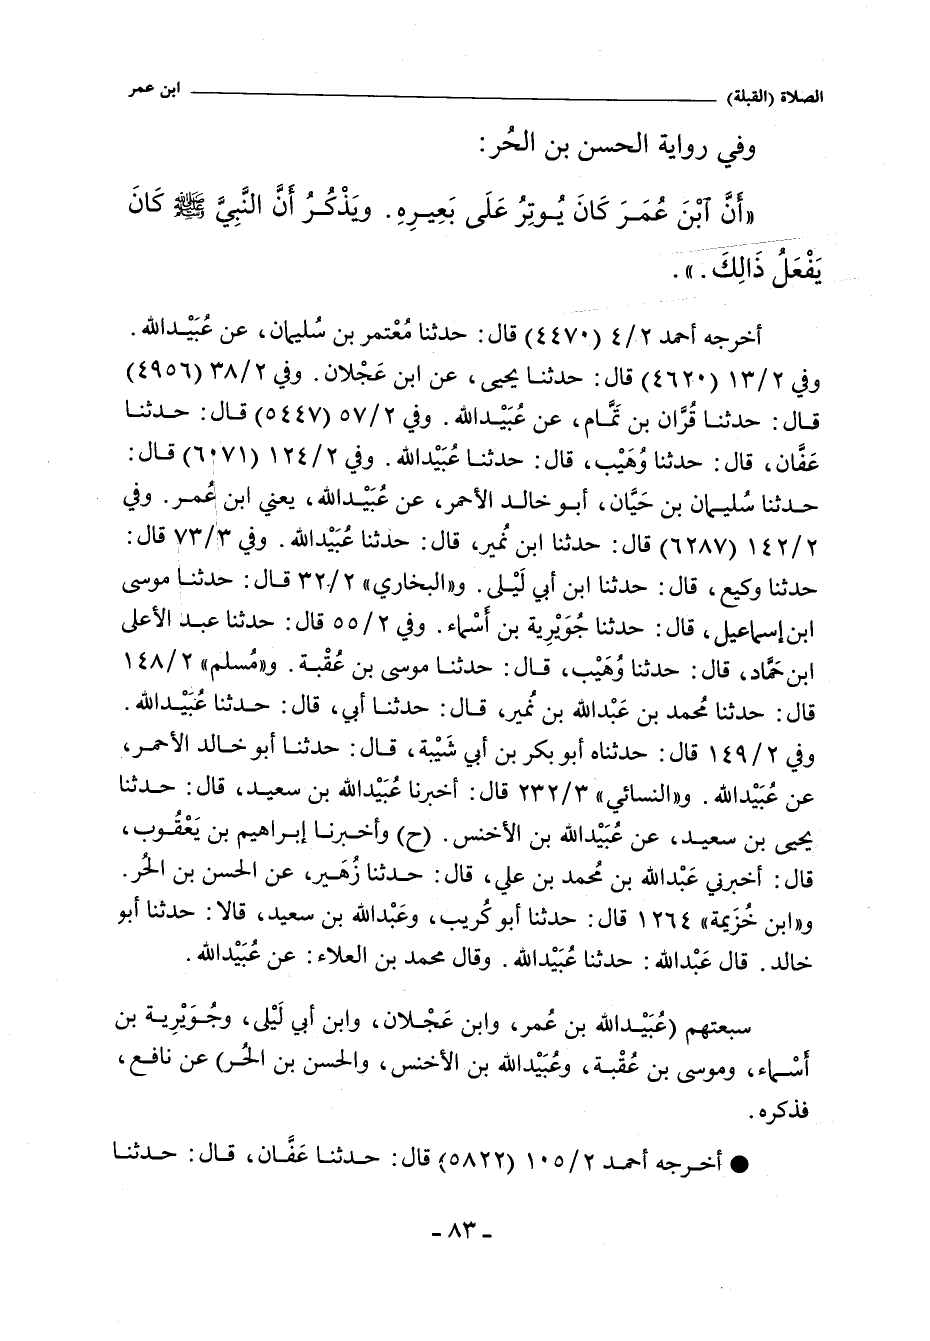 الصلاة (القبلة) ابن عمر
وفي رواية الحسن بن الحُر:
«أَنَّ آبْنَ عُمَرَ كَانَ يُوتِرُ عَلَى بَعِيرِهِ. ويَذْكُرُ أَنَّ النَّبِيَّ ﷺ كَانَ
يَفْعَلُ ذَالِكَ.».
أخرجه أحمد ٤/٢ (٤٤٧٠) قال: حدثنا مُعْتمر بن سُليمان، عن عُبَيْدالله.
وفي ١٣/٢ (٤٦٢٠) قال: حدثنا يحيى، عن ابن عَجْلان. وفي ٣٨/٢ (٤٩٥٦)
قال: حدثنا قُرَّان بن تَمَّام، عن عُبَيْدالله. وفي ٥٧/٢ (٥٤٤٧) قال: حدثنا
عَفَّان، قال: حدثنا وُهَيْب، قال: حدثنا عُبَيْدالله. وفي ١٢٤/٢ (٦٠٧١) قال:
حدثنا سُليمان بن حَيَّان، أبو خالد الأحمر، عن عُبَيْدالله، يعني ابن عُمر. وفي
١٤٢/٢ (٦٢٨٧) قال: حدثنا ابن نُمير، قال: حدثنا عُبَيْدالله. وفي ٧٣/٣ قال:
حدثنا وكيع، قال: حدثنا ابن أبي لَيْلى. و«البخاري» ٣٢/٢ قال: حدثنا موسى
ابن إسماعيل، قال: حدثنا جُوَيْرية بن أَسْماء. وفي ٥٥/٢ قال: حدثنا عبد الأعلى
ابن حَمَّاد، قال: حدثنا وُهَيْب، قال: حدثنا موسى بن عُقْبة. و«مُسلم» ١٤٨/٢
قال: حدثنا مُحمد بن عَبْدالله بن نُمير، قال: حدثنا أبي، قال: حدثنا عُبَيْدالله.
وفي ١٤٩/٢ قال: حدثناه أبو بكر بن أبي شَيْبة، قال: حدثنا أبو خالد الأحمر،
عن عُبَيْدالله. و«النسائي» ٢٣٢/٣ قال: أخبرنا عُبَيْدالله بن سعيد، قال: حدثنا
يحيى بن سعيد، عن عُبَيْدالله بن الأخنس. (ح) وأخبرنا إبراهيم بن يَعْقُوب،
قال: أخبرني عَبْدالله بن مُحمد بن علي، قال: حدثنا زُهَير، عن الحسن بن الحُر.
و«ابن خُزَيمة» ١٢٦٤ قال: حدثنا أبو كُريب، وعَبْدالله بن سعيد، قالا: حدثنا أبو
خالد. قال عَبْدالله: حدثنا عُبَيْدالله. وقال محمد بن العلاء: عن عُبَيْدالله.
سبعتهم (عُبَيْدالله بن عُمر، وابن عَجْلان، وابن أبي لَيْلى، وجُوَيْرية بن
أَسْماء، وموسى بن عُقْبة، وعُبَيْدالله بن الأخنس، والحسن بن الحُر) عن نافع،
فذكره.
● أخرجه أحمد ١٠٥/٢ (٥٨٢٢) قال: حدثنا عَفَّان، قال: حدثنا
- ٨٣ -